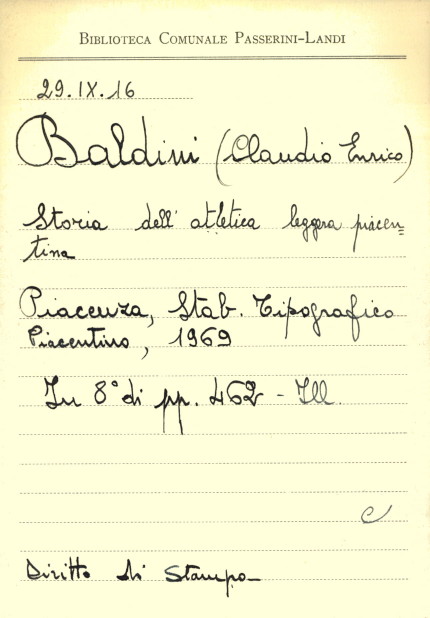 BIBLIOTECA COMUNALE PASSERINI-LANDI
29.IX.16
Baldini (Claudio Enrico)
Storia dell' atletica leggera piacen=
tina
Piacenza, Stab. Tipografico
Piacentino, 1969
In 8° di pp. 462 - Ill.
C
Diritto di Stampa